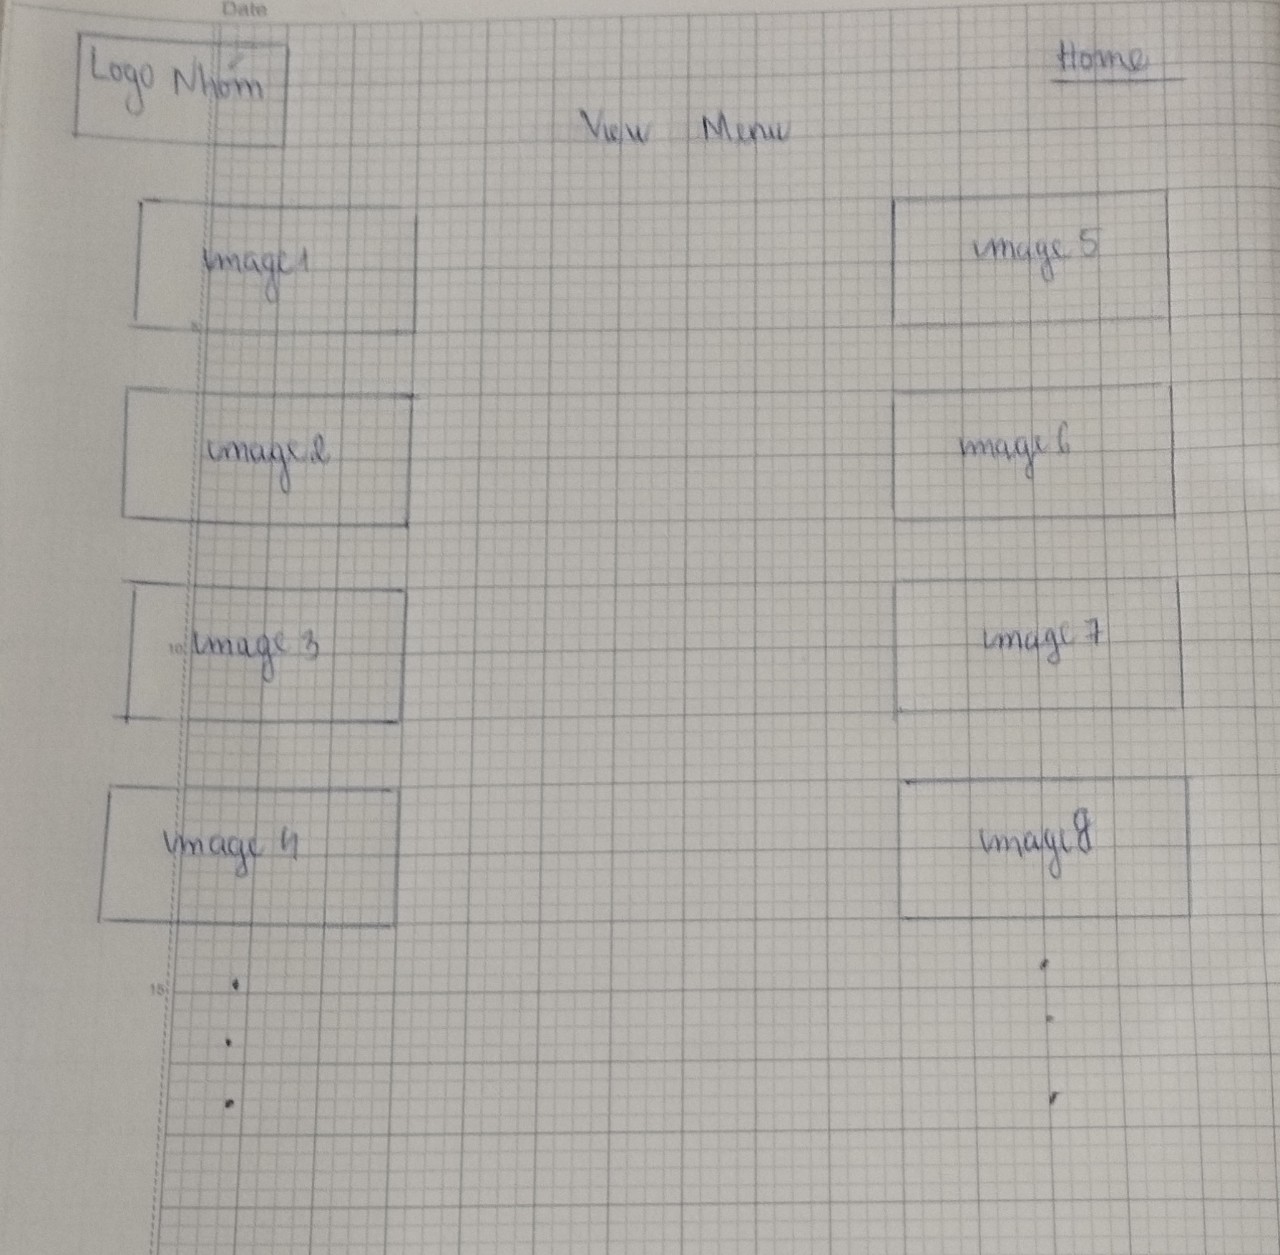 Date
Logo Nhóm
Home
View Menu
image 1
image 5
image 2
image 6
10
image 3
image 7
image 4
image 8
15